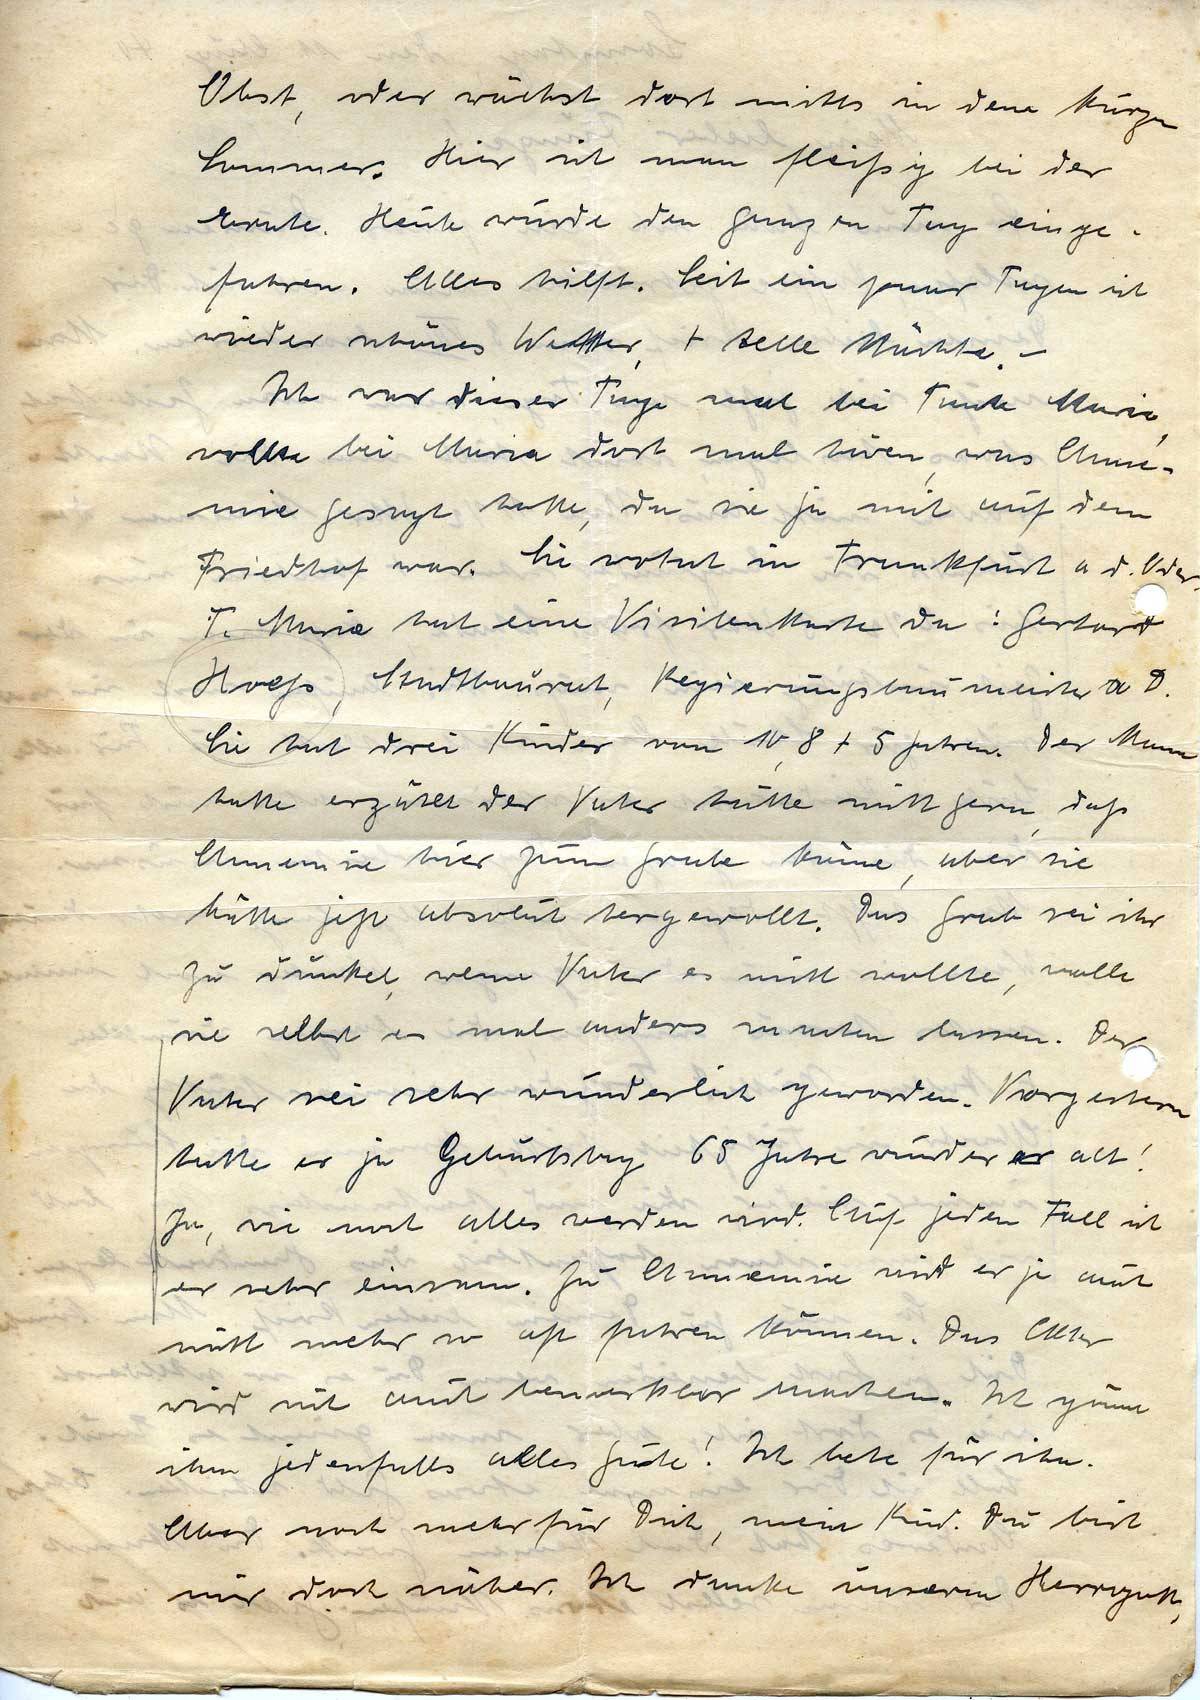 Obst, oder wächst dort nichts in dem kurzen
Sommer. Hier ist man fleißig bei der
Ernte. Heute wurde den ganzen Tag einge-
fahren. Alles hilft. Seit ein paar Tagen ist
wieder schönes Wetter, + helle Nächte. –
Ich war dieser Tage mal bei Tante Maria,
wollte bei Maria dort mal hören, was Anne-
mie gesagt hatte, da sie ja mit auf dem
Friedhof war. Sie wohnt in Frankfurt a d. Oder.
T. Maria hat eine Visitenkarte da: Gerhard
Hoeß, Stadtbaurat, Regierungsbaumeister a D.
Sie hat drei Kinder von 10, 8 + 5 Jahren. Der Mann
hatte erzählt der Vater hätte nicht gern, daß
Annemie hier zum Grabe käme, aber sie
hätte jetzt absolut hergewollt. Das Grab sei ihr
zu dunkel, wenn Vater es nicht wollte, wolle
sie selbst es mal anders machen lassen. Der
Vater sei sehr wunderlich geworden. Vorgestern
hatte er ja Geburtstag 65 Jahre wurde er alt!
Ja, wie noch alles werden wird. Auf jeden Fall ist
er sehr einsam. Zu Annemie wird er ja auch
nicht mehr so oft fahren können. Das Alter
wird sich auch bemerkbar machen. Ich gönne
ihm jedenfalls alles Gute! Ich bete für ihn.
Aber noch mehr für Dich, mein Kind. Du bist
mir doch näher. Ich danke unserm Herrgott,